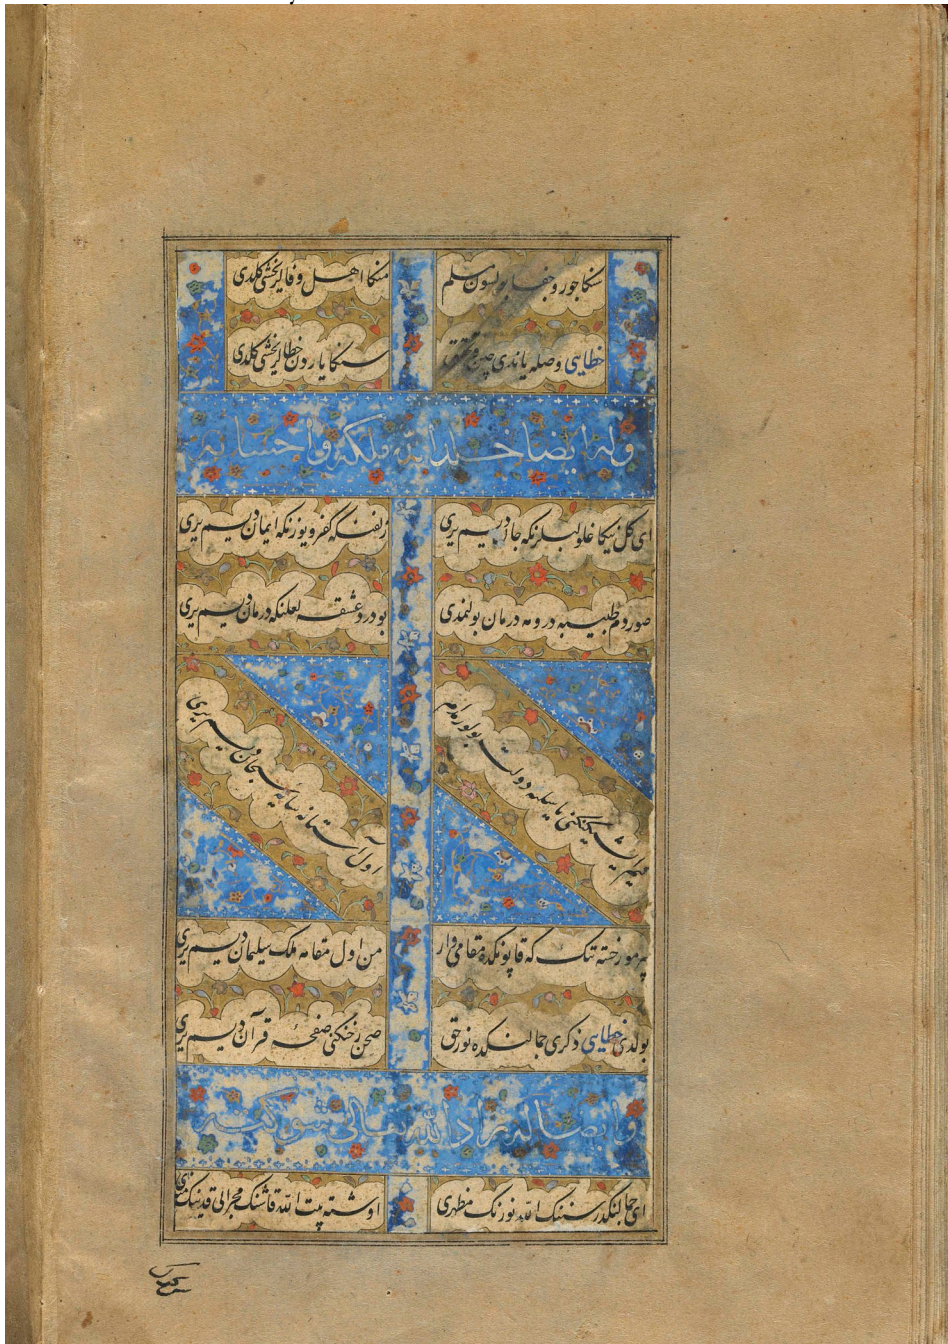 سنکا جور و جفا بولسون مسلم
منکا اهل وفالر یخشی کلدی
خطایی وصله یاندی چین محقق
سنکا یاردن خطالر یخشی کلدی
وله ایضا خلد الله ملکه و احسانه
ای کل نیکا غلولبلرنکه جان دریسم یری
زلفنکه کفر و یوزنکه ایمان دریسم یری
صوردم طبیبه دردمه درمان بولنمدی
بو درد عشقه لعلنکه درمان دریسم یری
ایشیکنکنی سایه دولت بولور مدام
اول آستانه سایه سبحان دریسم یری
خسته تنک که قاپونکده مقامی وار
من اول مقامه ملک سلیمان دریسم یری
بولدی خطایی ذکری جمالنکده نور حق
صحن رخنکنی صفحه قرآن دریسم یری
و ایضا له زاد الله تعالی شوکته
ای جمالنکدر سننک الله نورنک مظهری
اوشته بیت الله قاشنک محرابی قدینک